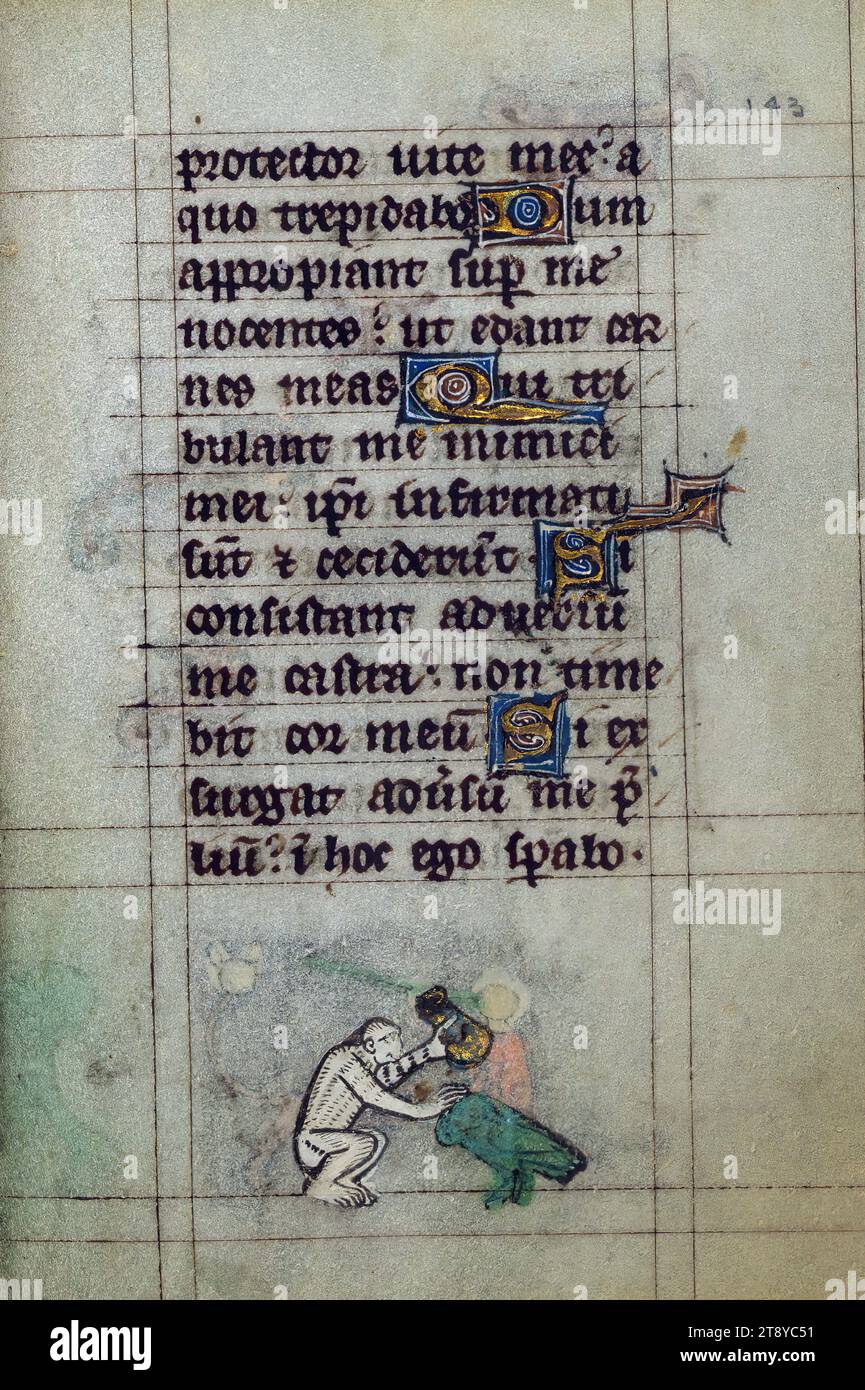 143
protector uite mee? a
quo trepidabo Dum
appropiant sup me
nocentes? ut edant car
nes meas Qui tri
bulant me inimici
mei? ip̄i infirmati
sūt ⁊ cecider̄ūt. Si
consistant aduersū
me castra? non time
bit cor meū Si ex
surgat adūsū me p̄
liū? ī hoc ego spabo.
alamy
alamy
alamy
alamy
Image ID: 2T8YC51
www.alamy.com